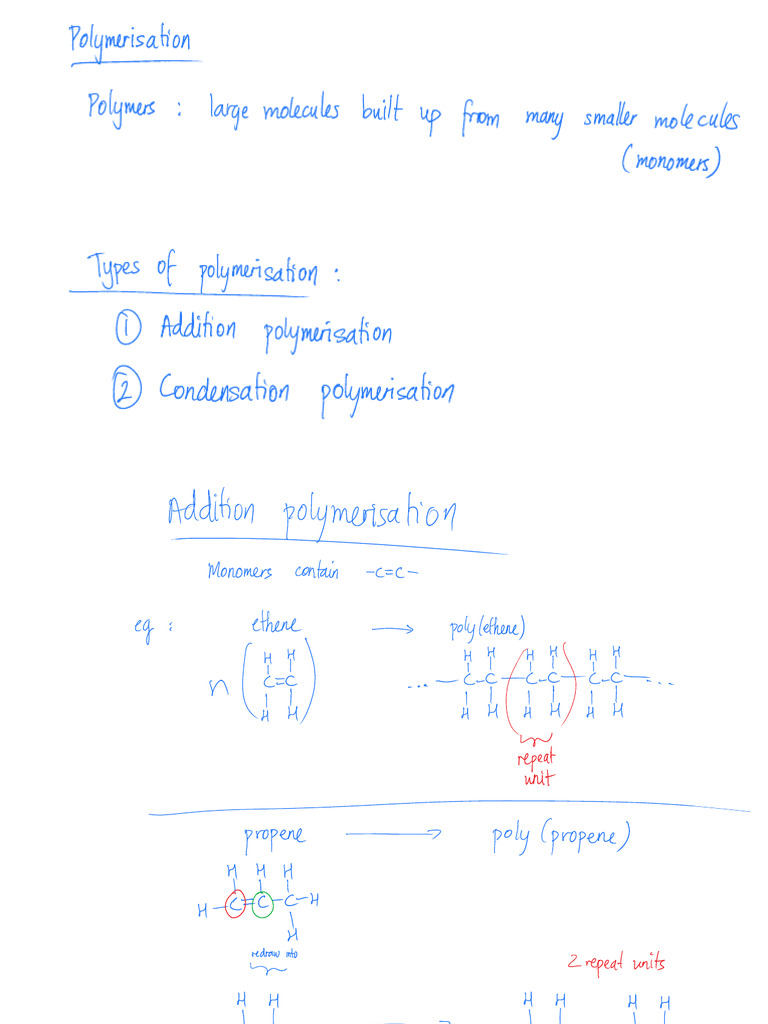 Polymerisation
Polymers : large molecules built up from many smaller molecules
(monomers)
Types of polymerisation :
① Addition polymerisation
② Condensation polymerisation
Addition polymerisation
Monomers contain -C=C-
eg : ethene → poly(ethene)
H H H H H H H H
n ( C=C ) ... - C-C-C-C-C-C - ...
H H H H H H H H
repeat
unit
propene → poly (propene)
H H H
H-C=C-C-H
H
redraw into
2 repeat units
H H H H H H